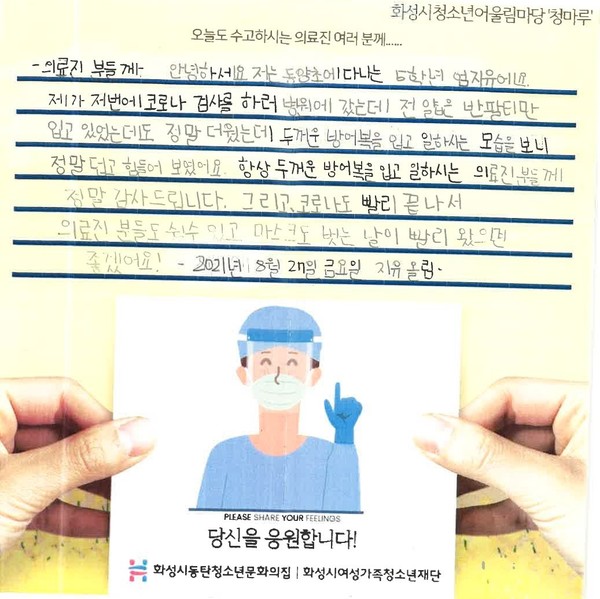 화성시청소년어울림마당 '청마루'
오늘도 수고하시는 의료진 여러 분께......
-의료진 분들께- 안녕하세요 저는 동양초에 다니는 5학년 염지유예요.
제가 저번에 코로나 검사를 하러 병원에 갔는데 전 얇은 반팔티만
입고 있었는데도 정말 더웠는데 두꺼운 방어복을 입고 일하시는 모습을 보니
정말 덥고 힘들어 보였어요. 항상 두꺼운 방어복을 입고 일하시는 의료진 분들께
정말 감사드립니다. 그리고, 코로나도 빨리 끝나서
의료진 분들도 쉴수 있고 마스크도 벗는 날이 빨리 왔으면
좋겠어요! - 2021년 8월 27일 금요일 지유 올림-
PLEASE SHARE YOUR FEELINGS
당신을 응원합니다!
화성시동탄청소년문화의집 | 화성시여성가족청소년재단